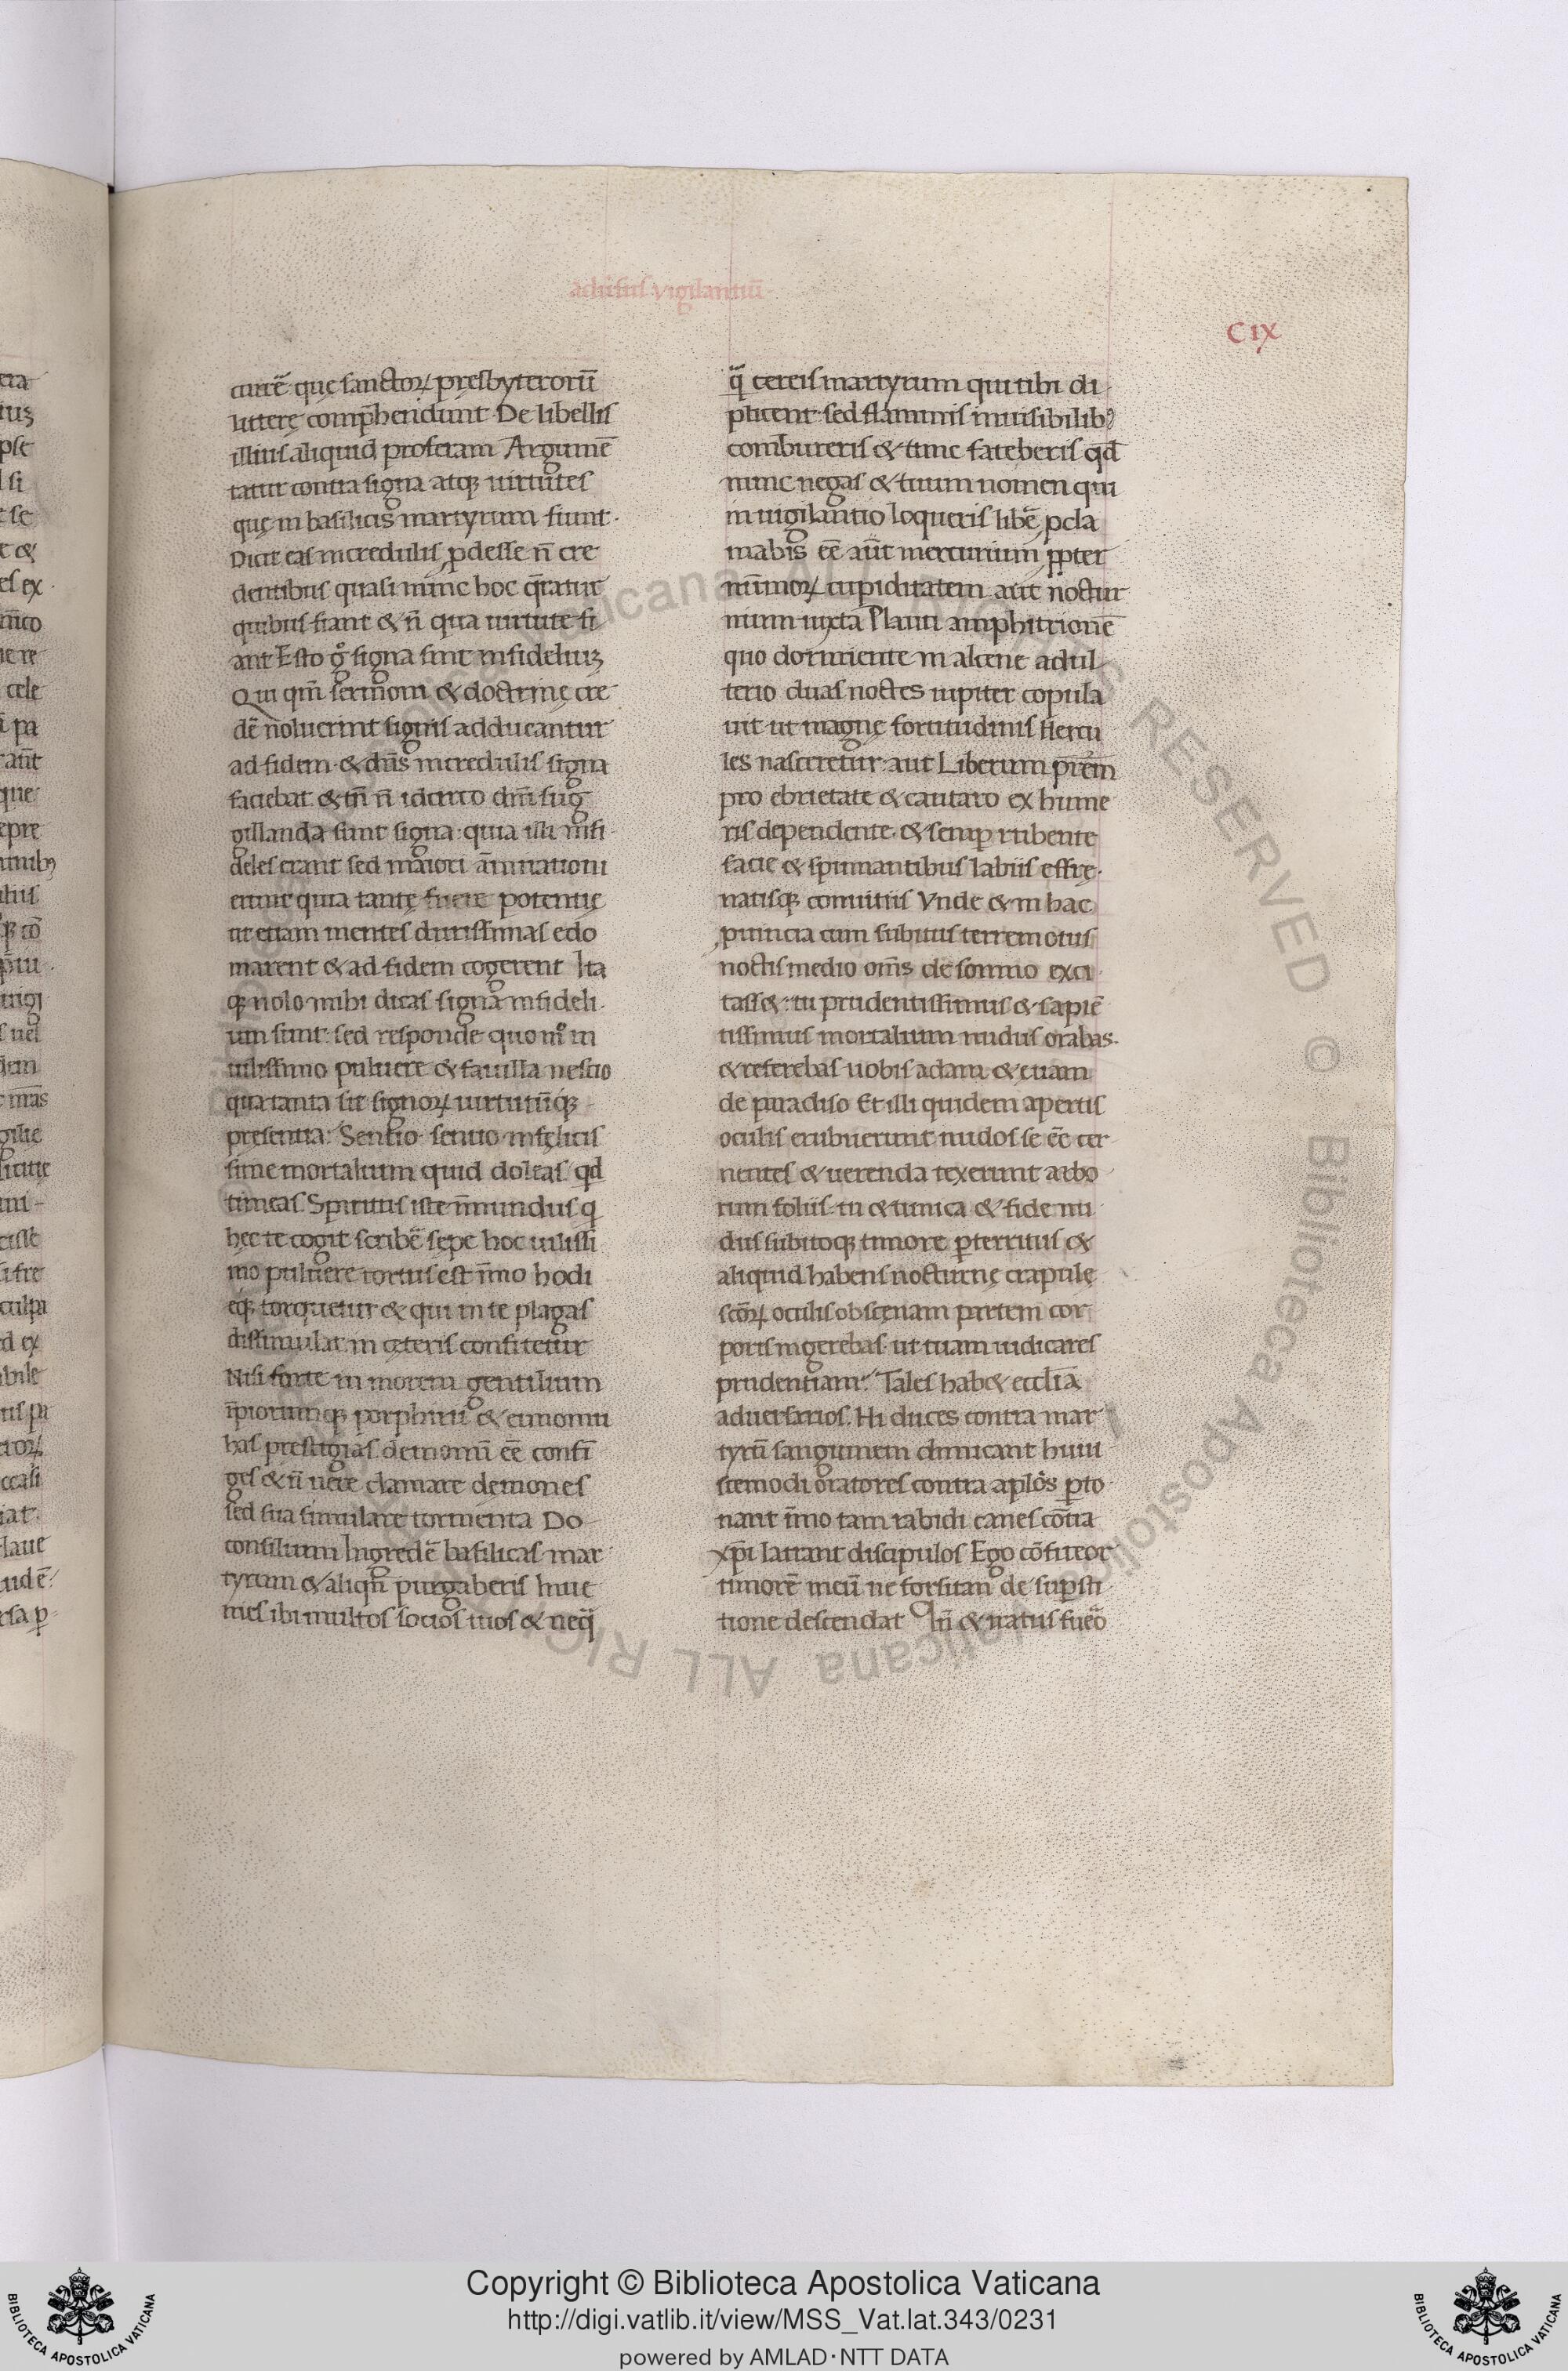 aduersus vigilantiū
CIX
currē que sanctoꝝ presbyterorū
litterę comp̄hendunt. De libellis
illius aliquid proferam Argumē
tatur contra signa atqꝫ uirtutes
quę in basilicis martyrum fiunt.
Dicit eas incredulis ꝓdesse n̄ cre
dentibus quasi nunc hoc q̄ratur
quibus fiant & n̄ qua uirtute fi
ant Esto gͦ signa sint infideliuꝫ
Qui qm̄ sermoni & doctrinę cre
dē noluerint signis adducantur
ad fidem. & dn̄s incredulis signa
faciebat & tn̄ n̄ idcirco dn̄i sug
gillanda sunt signa. quia illi infi
deles erant sed maiori āmirationi
erunt quia tantę fuere potentię
ut etiam mentes durissimas edo
marent & ad fidem cogerent Ita
qꝫ nolo mihi dicas signa infideli
um sunt. sed responde quomͦ in
uilissimo puluere & fauilla nescio
qua tanta sit signoꝝ uirtutūqꝫ
presentia. Sentio. sentio infęlicis
sime mortalium quid doleas qd̄
timeas. Spiritus iste īmundus q̄
hęc te cogit scribē sepe hoc uilissi
mo puluere tortus est īmo hodi
eqꝫ torquetur & qui in te plagas
dissimulat. in ceteris confitetur
Nisi forte in morem gentilium
īpiorumqꝫ porphirii & eunomii
has prestigias demonū eē confī
ges & n̄ uere clamare demones
sed sua simulare tormenta Do
consilium Ingredē basilicas mar
tyrum & aliqn̄ purgaberis Inue
nies ibi multos socios tuos & neq̄
q̄ cereis martyrum qui tibi di
plicent. sed flammis inuisibilibꝰ
combureris & tunc fateberis qd̄
nunc negas & tuum nomen qui
in uigilantio loqueris libē ꝓcla
mabis eē aūt mercurium ꝓpter
nūmoꝝ cupiditatem aut noctur
num iuxta Plauti amphitrionē
quo dormiente in alcene adul
terio duas noctes iupiter copula
uit ut magnę fortitudinis Hercu
les nasceretur. aut Liberum prēm
pro ebrietate & cantaro ex hume
ris dependente. & semp̄ rubente
facie & spumantibus labiis effrę
natisqꝫ conuitiis Vnde & in hac
ꝓuincia cum subitus terremotus
noctis medio om̄s de somno exci
tass&. tu prudentissimus & sapiē
tissimus mortalium nudus orabas.
& referebas nobis adam & euam
de paradiso Et illi quidem apertis
oculis erubuerunt nudos se eē cer
nentes & uerenda texerunt arbo
rum foliis. tu & tunica & fide nu
dus subitoqꝫ timore ꝑterritus &
aliquid habens nocturnę crapulę
sc̄oꝝ oculis obscęnam partem cor
poris ingerebas. ut tuam iudicares
prudentiam. Tales hab& eccl̄ia
aduersarios. Hi duces contra mar
tyrū sanguinem dimicant huiu
scemodi oratores contra aplōs ꝑto
nant īmo tam rabidi canes cōtra
xp̄i latrant discipulos Ego cōfiteor
timorē meū ne forsitan de suꝑsti
tione descendat Qn̄ & iratus fuēo
Copyright © Biblioteca Apostolica Vaticana
http://digi.vatlib.it/view/MSS_Vat.lat.343/0231
powered by AMLAD·NTT DATA